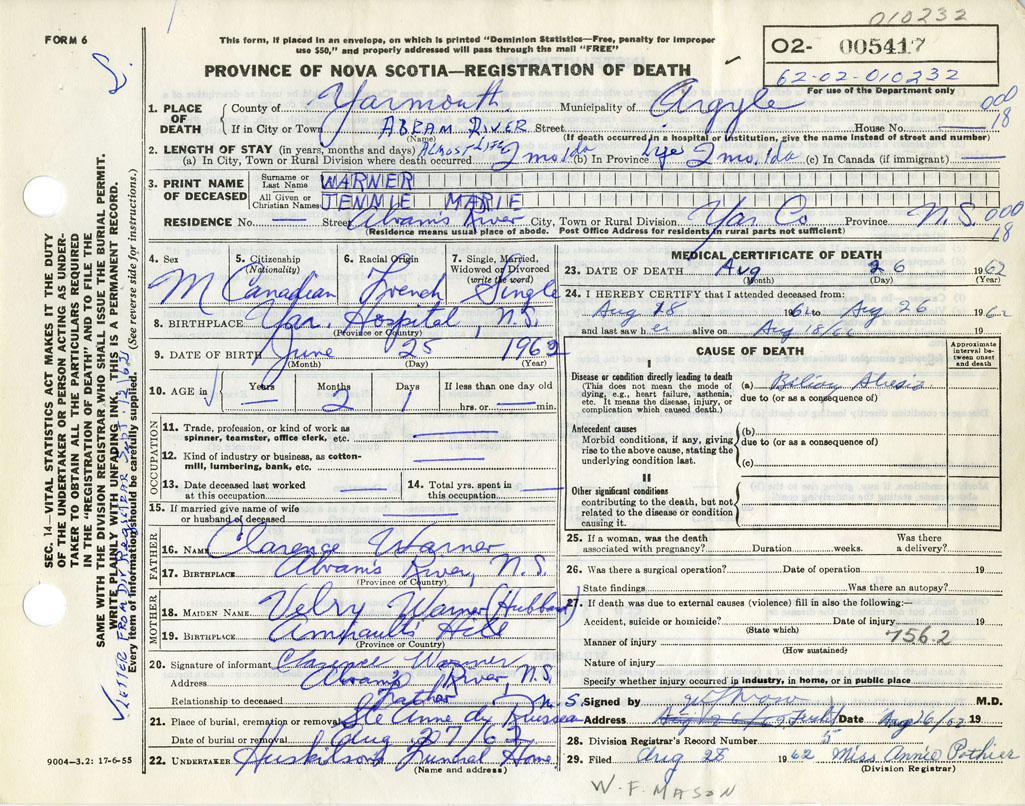 010232
FORM 6
This form, if placed in an envelope, on which is printed "Dominion Statistics—Free, penalty for improper
use $50," and properly addressed will pass through the mail "FREE"
O2- 005417
62-02-010232
For use of the Department only
PROVINCE OF NOVA SCOTIA—REGISTRATION OF DEATH
1. PLACE OF DEATH County of Yarmouth Municipality of Argyle 000
18
If in City or Town ABRAM RIVER Street House No.
(Name) (If death occurred in a hospital or institution, give the name instead of street and number)
2. LENGTH OF STAY (in years, months and days) ALMOST LIFE
(a) In City, Town or Rural Division where death occurred 2 mo 1da (b) In Province Life 2 mo. 1da (c) In Canada (if immigrant) —
3. PRINT NAME OF DECEASED Surname or Last Name WARNER
All Given or Christian Names JENNIE MARIE
RESIDENCE No. — Street Abram's River City, Town or Rural Division Yar. Co Province N.S. 000
18
(Residence means usual place of abode. Post Office Address for residents in rural parts not sufficient)
4. Sex 5. Citizenship (Nationality) 6. Racial Origin 7. Single, Married, Widowed or Divorced (write the word)
M Canadian French Single
8. BIRTHPLACE Yar. Hospital, N.S.
(Province or Country)
9. DATE OF BIRTH June 25 1962
(Month) (Day) (Year)
10. AGE in Years Months Days If less than one day old
— 2 1 hrs. or min.
OCCUPATION
11. Trade, profession, or kind of work as spinner, teamster, office clerk, etc. —
12. Kind of industry or business, as cotton-mill, lumbering, bank, etc. —
13. Date deceased last worked at this occupation — 14. Total yrs. spent in this occupation —
15. If married give name of wife or husband of deceased —
FATHER
16. NAME Clarence Warner
17. BIRTHPLACE Abram's River, N.S.
(Province or Country)
MOTHER
18. MAIDEN NAME Velry Warner (Hubbard)
19. BIRTHPLACE Hill
(Province or Country)
20. Signature of informant Clarence Warner
Address Abram's River, N.S.
Relationship to deceased Father
21. Place of burial, cremation or removal Ste Anne du Ruisseau N.S.
Date of burial or removal Aug 27/62
22. UNDERTAKER Huskilson's Funeral Home
(Name and address)
MEDICAL CERTIFICATE OF DEATH
23. DATE OF DEATH Aug 26 1962
(Month) (Day) (Year)
24. I HEREBY CERTIFY that I attended deceased from:
Aug 18 1962 to Aug 26 1962
and last saw her alive on Aug 18/62 19
CAUSE OF DEATH
Approximate interval between onset and death
I
Disease or condition directly leading to death
(This does not mean the mode of dying, e.g., heart failure, asthenia, etc. It means the disease, injury, or complication which caused death.)
(a) Biliary Atresia
due to (or as a consequence of)
Antecedent causes
Morbid conditions, if any, giving rise to the above cause, stating the underlying condition last.
(b)
due to (or as a consequence of)
(c)
II
Other significant conditions
contributing to the death, but not related to the disease or condition causing it.
25. If a woman, was the death associated with pregnancy? Duration weeks. Was there a delivery?
26. Was there a surgical operation? Date of operation 19
State findings Was there an autopsy?
27. If death was due to external causes (violence) fill in also the following:—
Accident, suicide or homicide? Date of injury 19
(State which)
756.2
Manner of injury
(How sustained)
Nature of injury
Specify whether injury occurred in industry, in home, or in public place
Signed by M.D.
Address Date Aug 26/62 19
28. Division Registrar's Record Number 5
29. Filed Aug 28 1962 Miss Annie Pothier
(Division Registrar)
9004-3.2: 17-6-55
W. F. MASON
SEC. 14—VITAL STATISTICS ACT MAKES IT THE DUTY
OF THE UNDERTAKER OR PERSON ACTING AS UNDER-
TAKER TO OBTAIN ALL THE PARTICULARS REQUIRED
IN THE "REGISTRATION OF DEATH" AND TO FILE THE
SAME WITH THE DIVISION REGISTRAR WHO SHALL ISSUE THE BURIAL PERMIT.
WRITE PLAINLY WITH UNFADING INK, THIS IS A PERMANENT RECORD.
Every item of information should be carefully supplied. (See reverse side for instructions.)
LETTER FROM DIV. REGISTRAR SEPT. 12, 1962